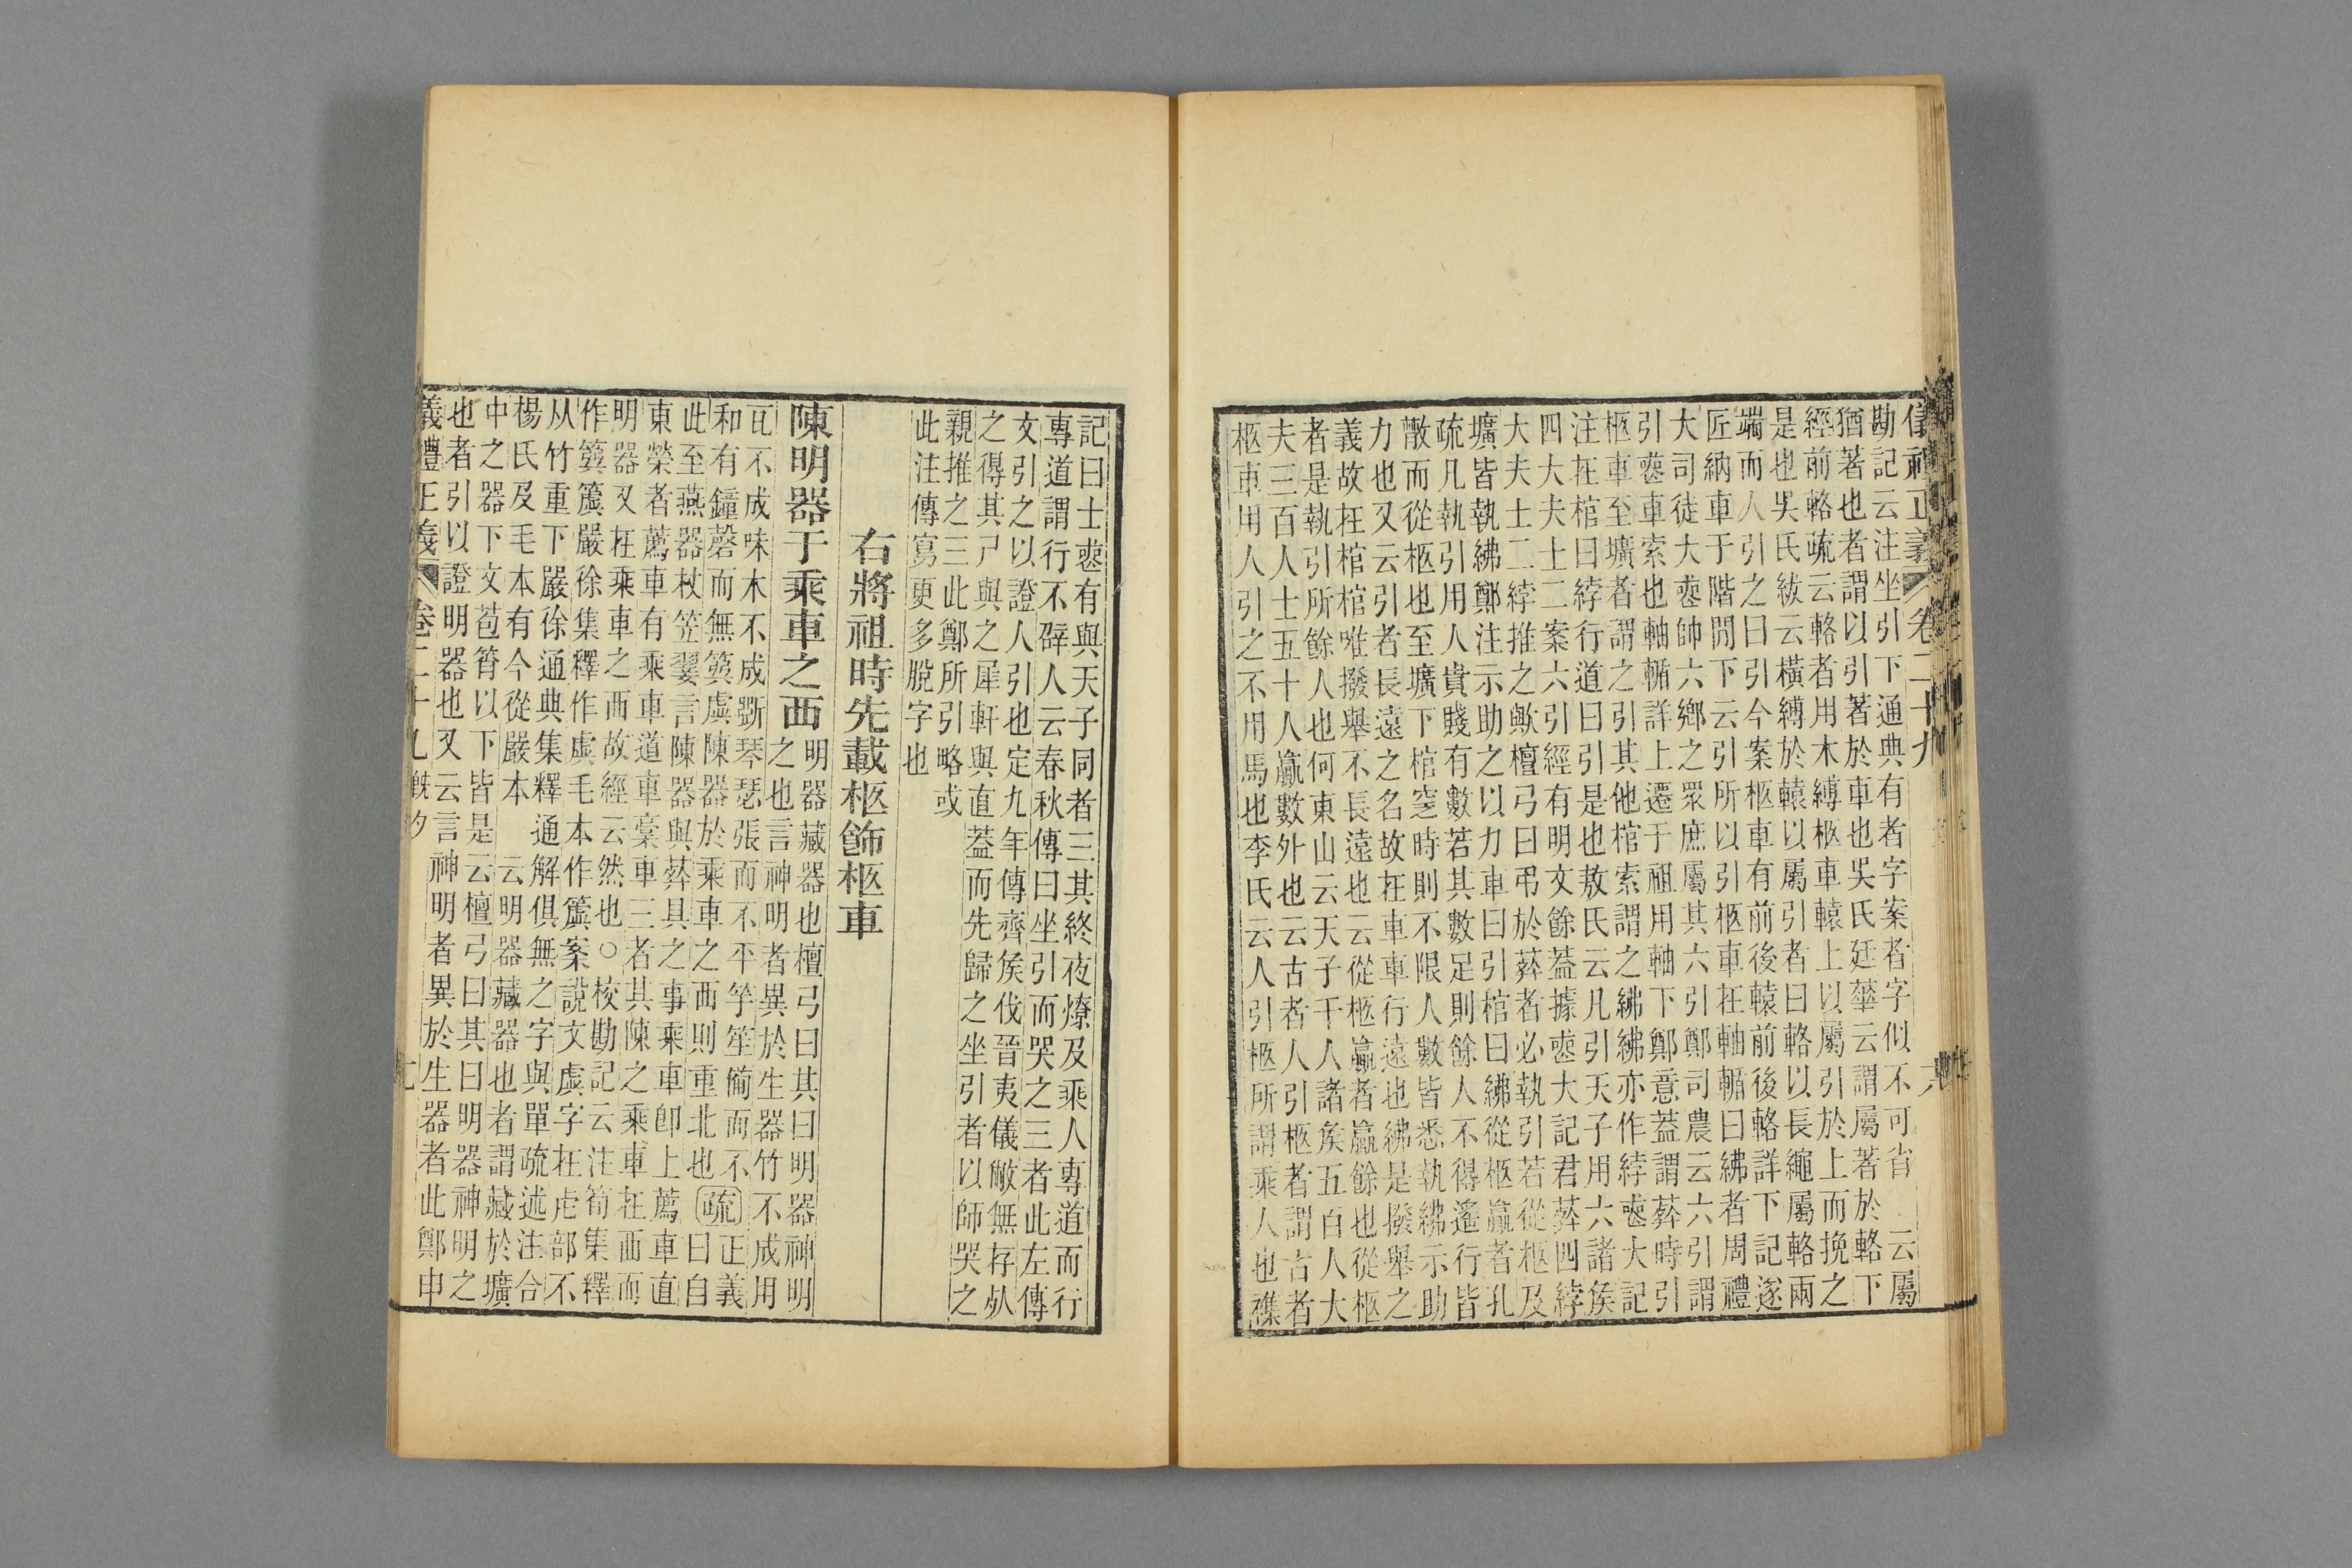 儀禮正義 卷二十九 六
勘記云注坐引下通典有者字案者字似不可省 云屬
猶著也者謂以引著於車也吳氏廷華云謂屬著於輅下
經前輅疏云輅者用木縛柩車轅上以屬引於上而挽之
是也吳氏紱云橫縛於轅以屬引者曰輅以長繩屬輅兩
端而人引之曰引今案柩車有前後轅前後輅詳下記遂
匠納車于階閒下云引所以引柩車在軸輴曰紼者周禮
大司徒大喪帥六鄉之眾庶屬其六引鄭司農云六引謂
引喪車索也軸輴詳上遷于祖用軸下鄭意蓋謂葬時引
柩車至壙者謂之引其他棺索謂之紼紼亦作綍喪大記
注在棺曰綍行道曰引是也敖氏云凡引天子用六諸侯
四大夫士二案六引經有明文餘蓋據喪大記君葬四綍
大夫士二綍推之歟檀弓曰弔於葬者必執引若從柩及
壙皆執紼鄭注示助之以力車曰引棺曰紼從柩贏者孔
疏凡執引用人貴賤有數若其數足則餘人不得遙行皆
散而從柩也至壙下棺窆時則不限人數皆悉執紼示助
力也又云引者長遠之名故在車車行遠也紼是撥舉之
義故在棺棺唯撥舉不長遠也云從柩贏者贏餘也從柩
者是執引所餘人也何東山云天子千人諸侯五百人大
夫三百人士五十人贏數外也云古者人引柩者謂古者
柩車用人引之不用馬也李氏云人引柩所謂乘人也襍
記曰士喪有與天子同者三其終夜燎及乘人專道而行
專道謂行不辟人云春秋傳曰坐引而哭之三者此左傳
文引之以證人引也定九年傳齊侯伐晉夷儀敝無存死
之得其尸與之犀軒與直蓋而先歸之坐引者以師哭之
親推之三此鄭所引略或
此注傳寫更多脫字也
右將祖時先載柩飾柩車
陳明器于乘車之西
明器藏器也檀弓曰其曰明器神明
之也言神明者異於生器竹不成用
瓦不成味木不成斲琴瑟張而不平竽笙備而不
和有鐘磬而無簨虡陳器於乘車之西則重北也
疏正義曰自
此至燕器杖笠翣言陳器與葬具之事乘車即上薦車直
東榮者薦車有乘車道車槀車三者其陳之乘車在西而
明器又在乘車之西故經云然也○校勘記云注筍集釋
作簨簴嚴徐集釋作虡毛本作簴案說文虡字在虍部不
从竹重下嚴徐通典集釋通解俱無之字與單疏述注合
楊氏及毛本有今從嚴本 云明器藏器也者謂藏於壙
中之器下文苞筲以下皆是云檀弓曰其曰明器神明之
也者引以證明器也又云言神明者異於生器者此鄭申
儀禮正義 卷二十九 旣夕